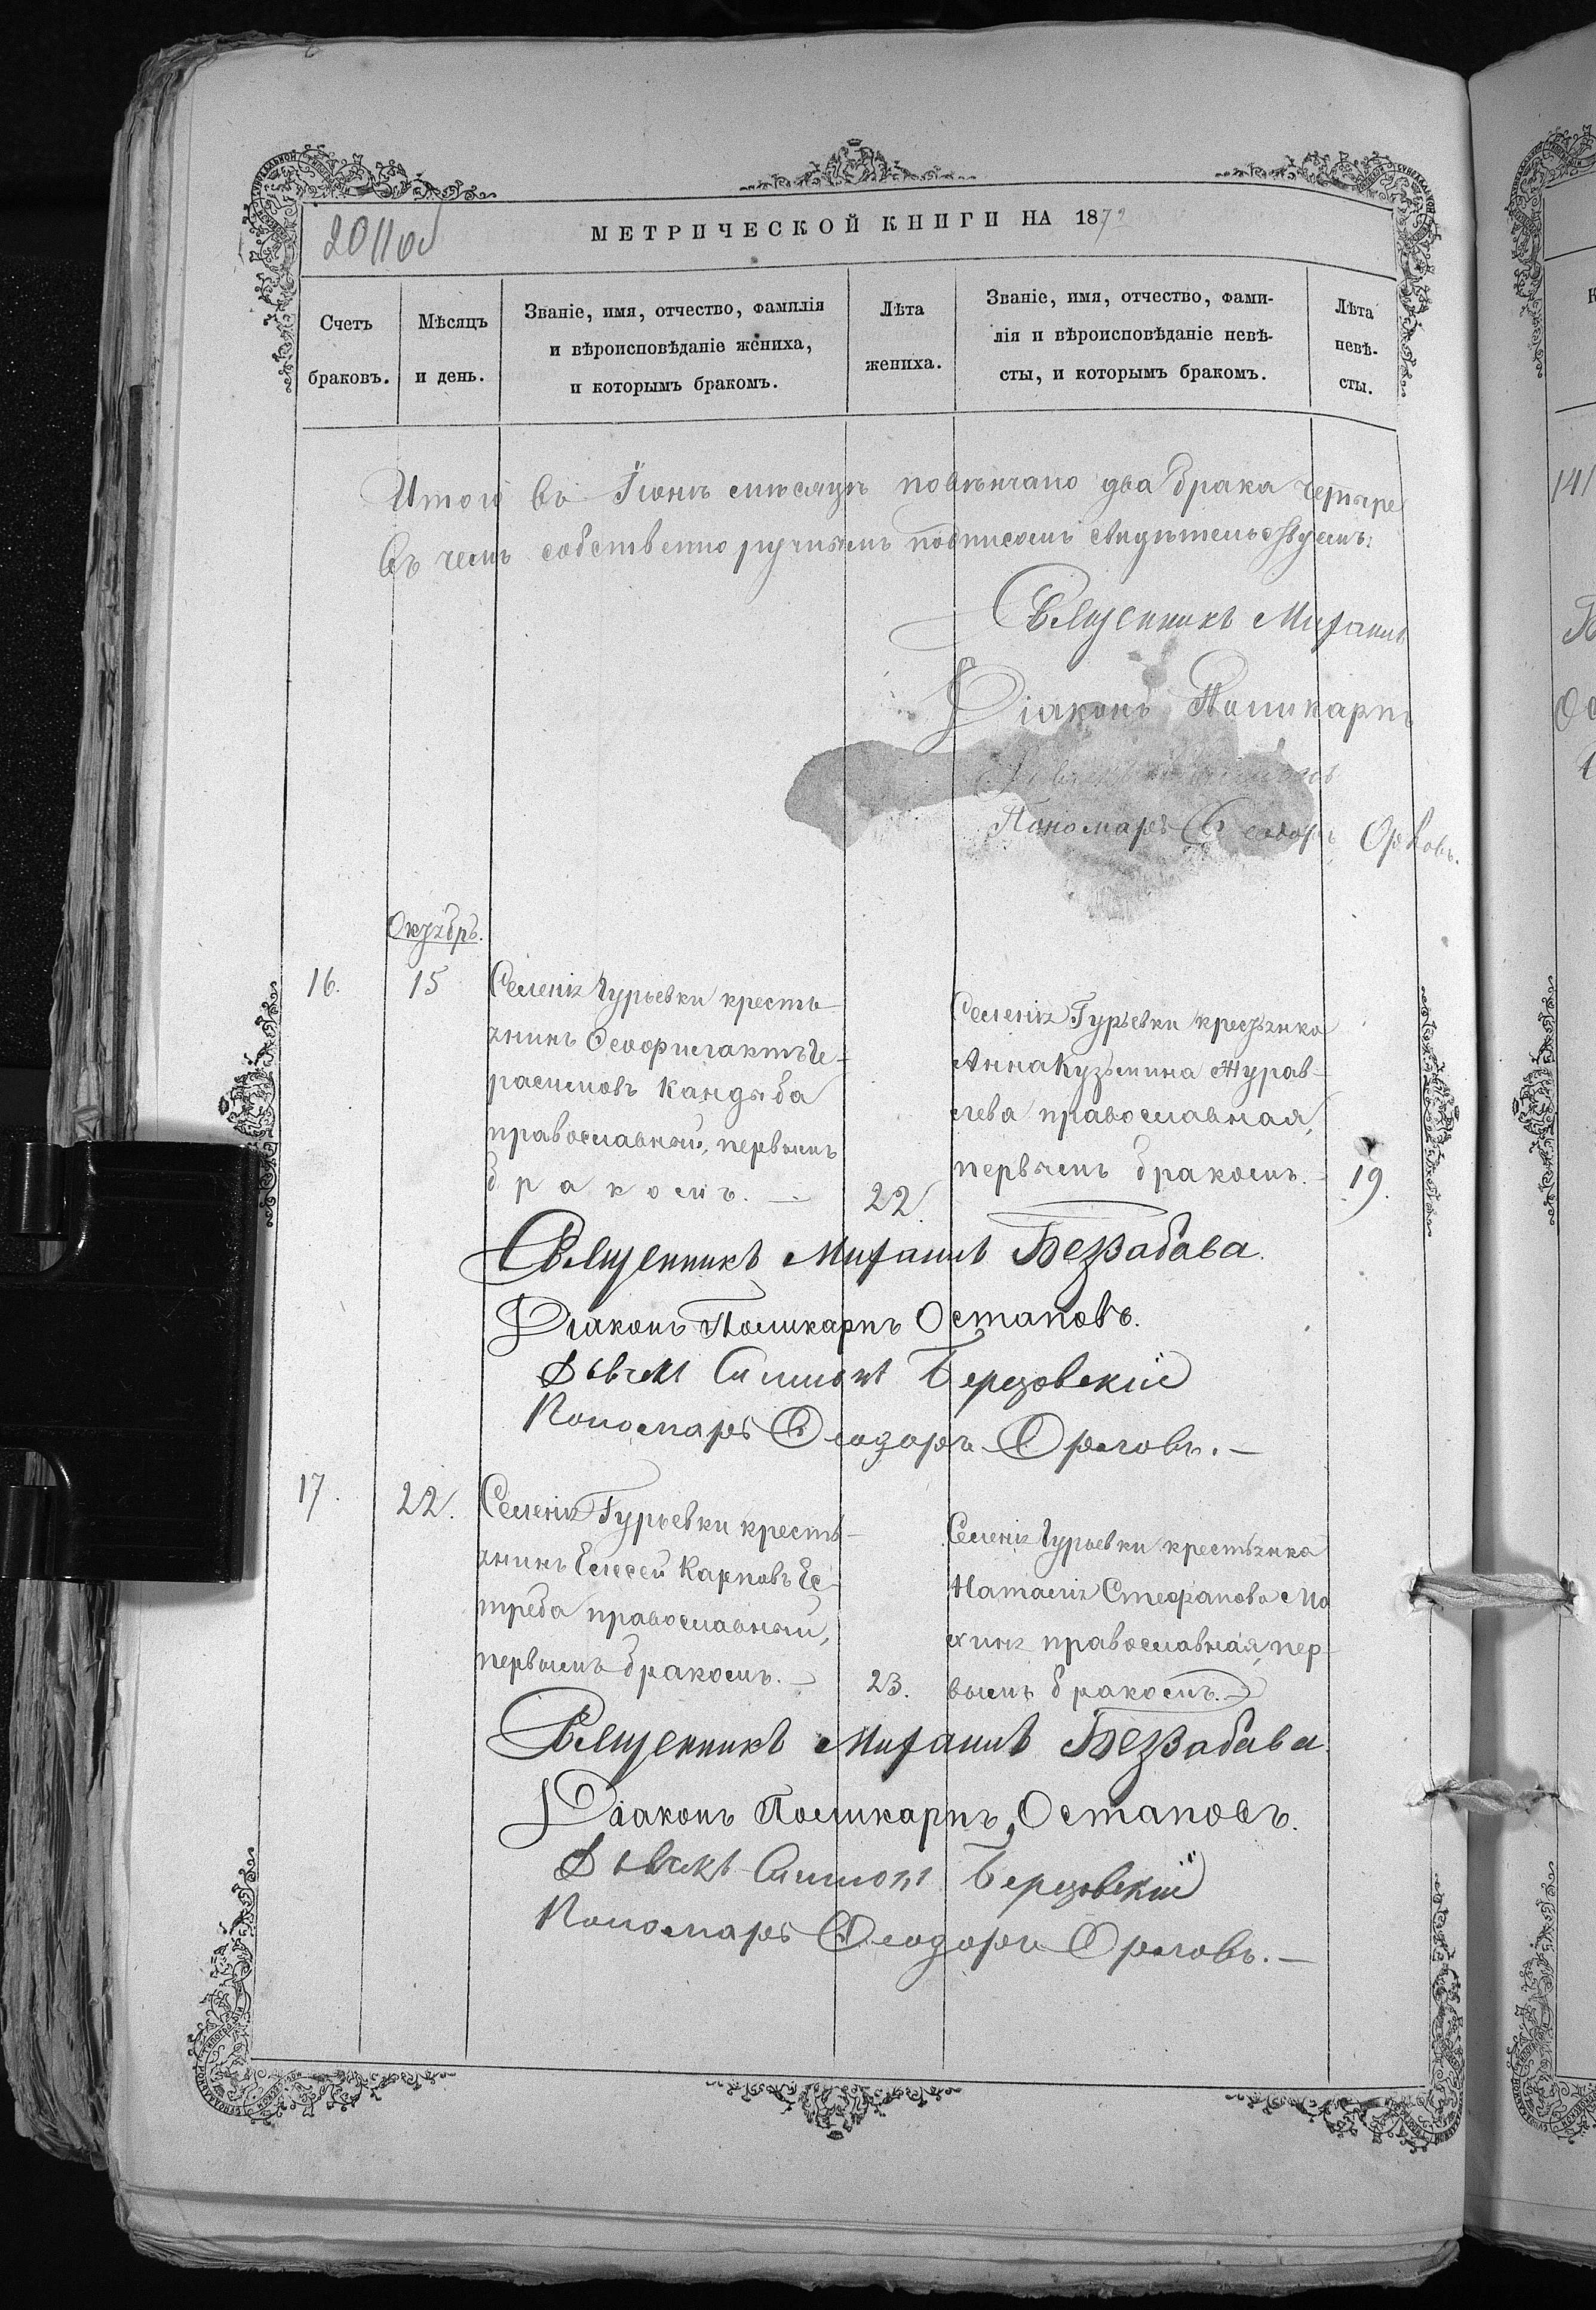 2011об
МЕТРИЧЕСКОЙ КНИГИ НА 1872
Счетъ
браковъ.
Мѣсяцъ
и день.
Званіе, имя, отчество, фамилія
и вѣроисповѣданіе жениха,
и которымъ бракомъ.
Лѣта
жениха.
Званіе, имя, отчество, фами-
лія и вѣроисповѣданіе невѣ-
сты, и которымъ бракомъ.
Лѣта
невѣ-
сты.
Итого въ Іюнѣ мѣсяцѣ повѣнчано два брака четыре
въ чемъ собственноручнымъ подписомъ свидѣтельствуемъ:
Священникъ Михаилъ
Діаконъ Поликарпъ
Пономарь Ѳеодоръ Орловъ.
Октябрь.
16.
15
Селенія Гурьевки кресть-
янинъ Ѳеофилактъ Ге-
расимовъ Кандыба
православный, первымъ
бракомъ. —
22.
Селенія Гурьевки крестьянка
Анна Кузьмина Журав-
лева православная,
первымъ бракомъ.
19.
Священникъ Михаилъ Беззабава.
Діаконъ Поликарпъ Остаповъ.
Дьячекъ Симіонъ Березовскій
Пономарь Ѳеодоръ Орловъ. —
17.
22.
Селенія Гурьевки кресть-
янинъ Елесей Карповъ Яс-
треба православный,
первымъ бракомъ. —
23.
Селенія Гурьевки крестьянка
Наталія Стефанова
православная, пер-
вымъ бракомъ. —
Священникъ Михаилъ Беззабава.
Діаконъ Поликарпъ Остаповъ.
Дьячекъ Симіонъ Березовскій
Пономарь Ѳеодоръ Орловъ. —
141